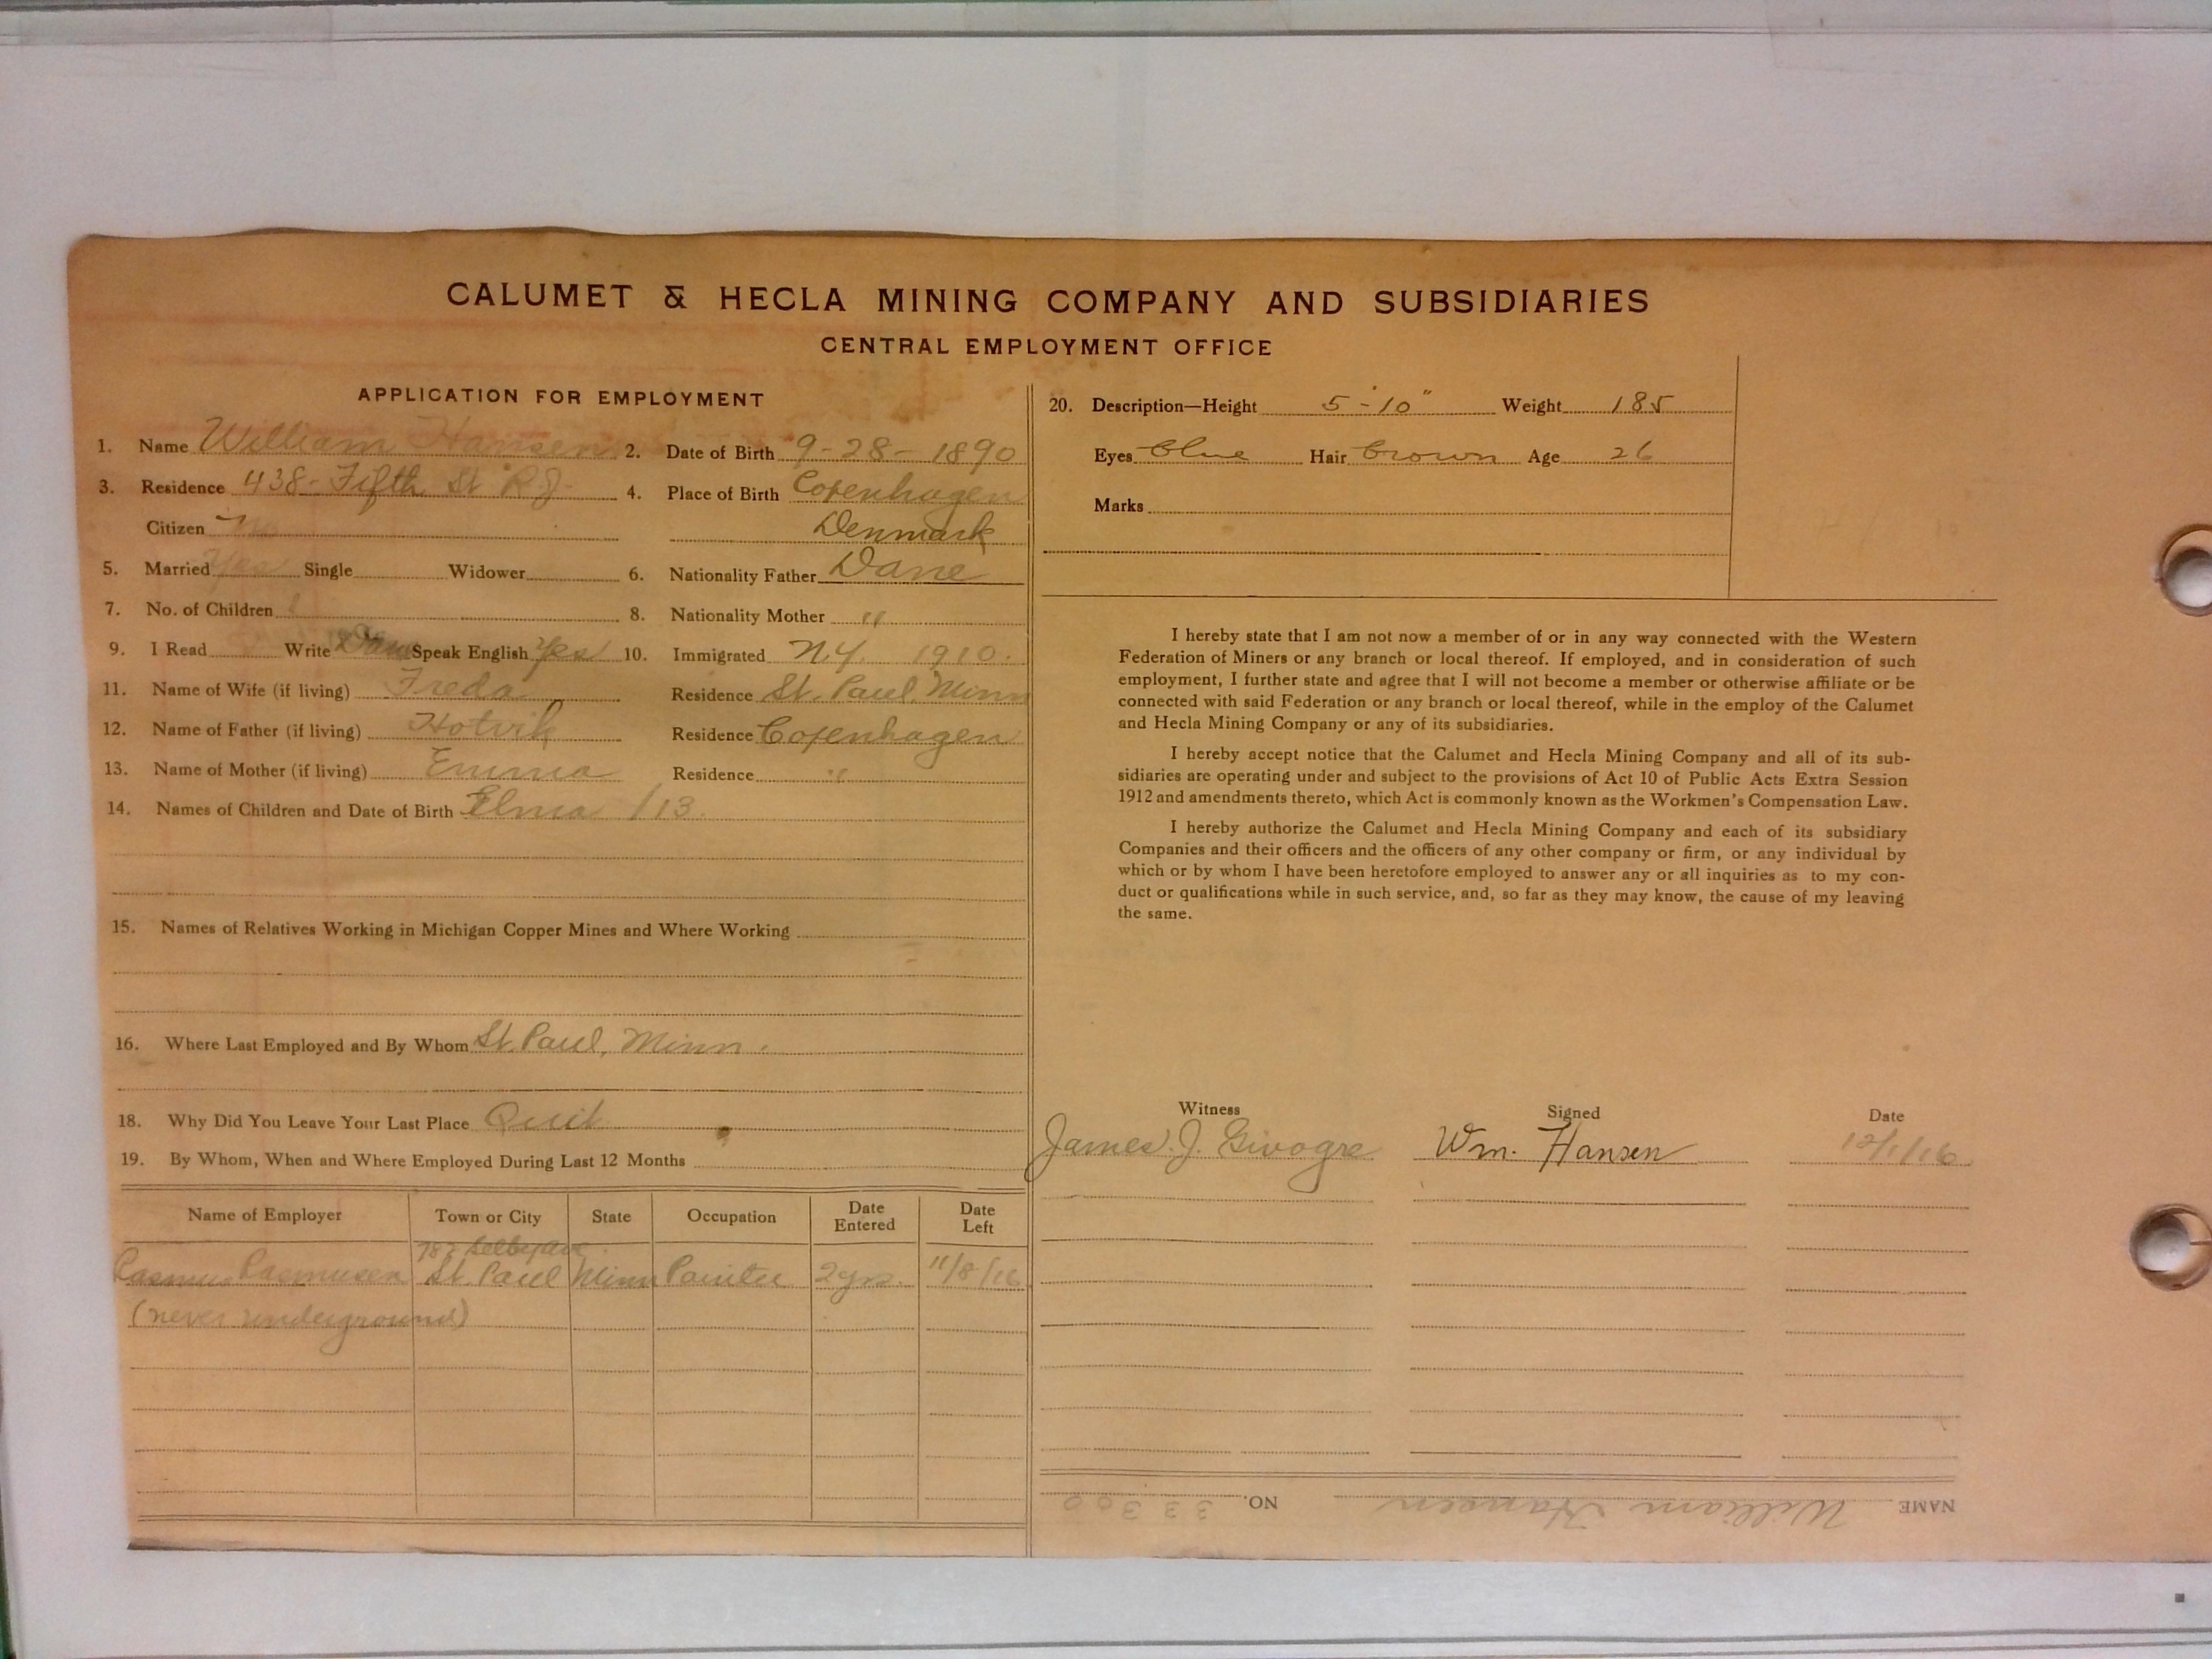 CALUMET & HECLA MINING COMPANY AND SUBSIDIARIES
CENTRAL EMPLOYMENT OFFICE
APPLICATION FOR EMPLOYMENT
1. Name William Hansen 2. Date of Birth 9-28-1890
3. Residence 438- Fifth St R.J. 4. Place of Birth Copenhagen
Citizen No Denmark
5. Married Yes Single Widower 6. Nationality Father Dane
7. No. of Children 8. Nationality Mother "
9. I Read Write Dane Speak English Yes 10. Immigrated N.Y. 1910.
11. Name of Wife (if living) Freda Residence St. Paul, Minn
12. Name of Father (if living) Hotvik Residence Copenhagen
13. Name of Mother (if living) Emma Residence "
14. Names of Children and Date of Birth Elma /13.
15. Names of Relatives Working in Michigan Copper Mines and Where Working
16. Where Last Employed and By Whom St. Paul, Minn.
18. Why Did You Leave Your Last Place Quit
19. By Whom, When and Where Employed During Last 12 Months
Name of Employer Town or City State Occupation Date Entered Date Left
787 Selby Ave.
Rasmus Rasmusen St. Paul Minn Painter 2 yrs. 11/8/16
(never underground)
20. Description—Height 5-10" Weight 185
Eyes Blue Hair Brown Age 26
Marks
I hereby state that I am not now a member of or in any way connected with the Western
Federation of Miners or any branch or local thereof. If employed, and in consideration of such
employment, I further state and agree that I will not become a member or otherwise affiliate or be
connected with said Federation or any branch or local thereof, while in the employ of the Calumet
and Hecla Mining Company or any of its subsidiaries.
I hereby accept notice that the Calumet and Hecla Mining Company and all of its sub-
sidiaries are operating under and subject to the provisions of Act 10 of Public Acts Extra Session
1912 and amendments thereto, which Act is commonly known as the Workmen's Compensation Law.
I hereby authorize the Calumet and Hecla Mining Company and each of its subsidiary
Companies and their officers and the officers of any other company or firm, or any individual by
which or by whom I have been heretofore employed to answer any or all inquiries as to my con-
duct or qualifications while in such service, and, so far as they may know, the cause of my leaving
the same.
Witness Signed Date
James. J. Givogre Wm. Hansen 12/1/16
NAME William Hansen NO. 33300